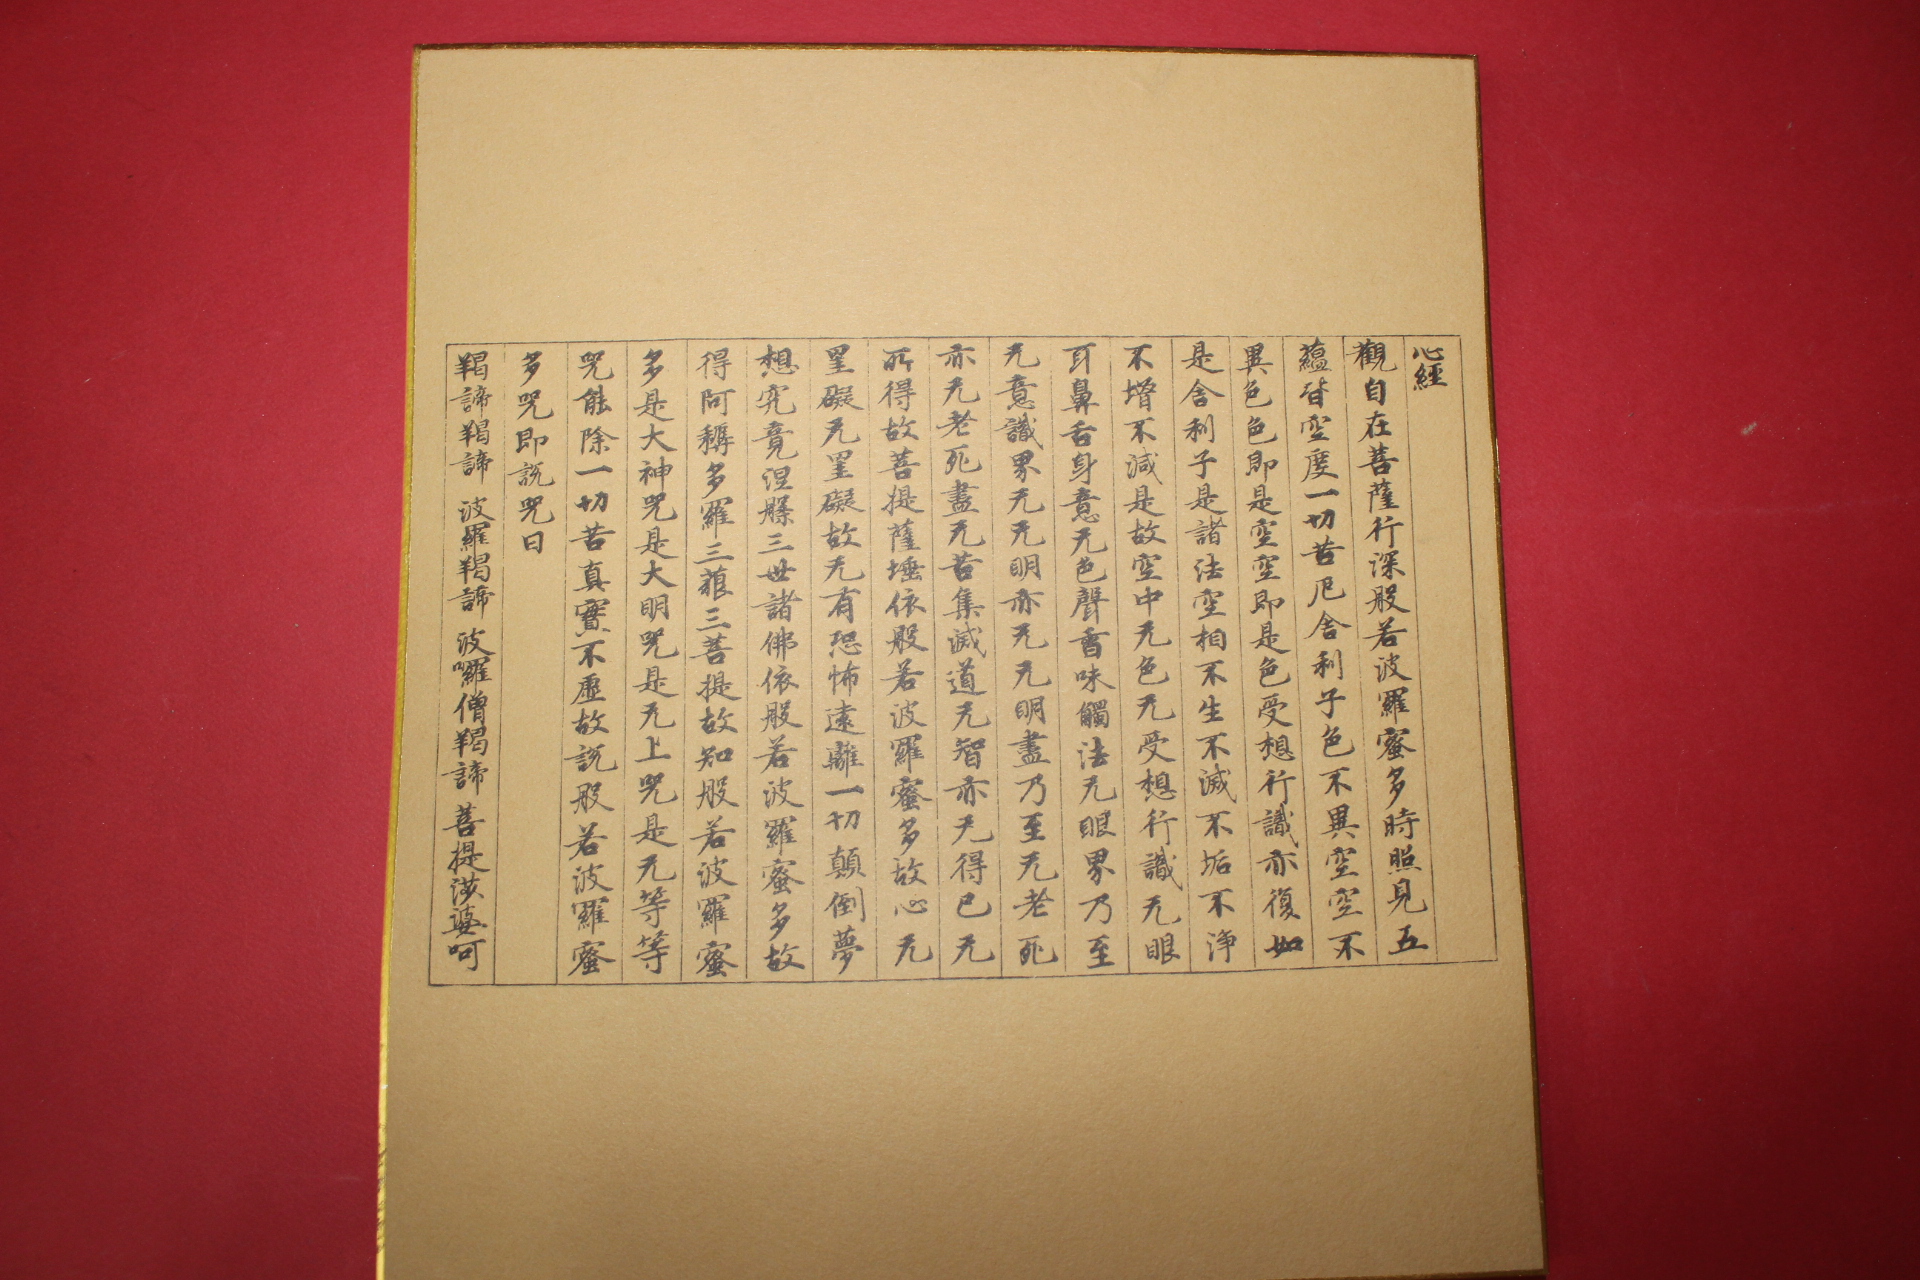 心經
觀自在菩薩行深般若波羅蜜多時照見五
蘊皆空度一切苦厄舍利子色不異空空不
異色色即是空空即是色受想行識亦復如
是舍利子是諸法空相不生不滅不垢不淨
不增不減是故空中无色无受想行識无眼
耳鼻舌身意无色聲香味觸法无眼界乃至
无意識界无无明亦无无明盡乃至无老死
亦无老死盡无苦集滅道无智亦无得已无
所得故菩提薩埵依般若波羅蜜多故心无
罣礙无罣礙故无有恐怖遠離一切顛倒夢
想究竟涅槃三世諸佛依般若波羅蜜多故
得阿耨多羅三藐三菩提故知般若波羅蜜
多是大神咒是大明咒是无上咒是无等等
咒能除一切苦真實不虛故説般若波羅蜜
多咒即説咒曰
羯諦羯諦 波羅羯諦 波囉僧羯諦 菩提婆呵